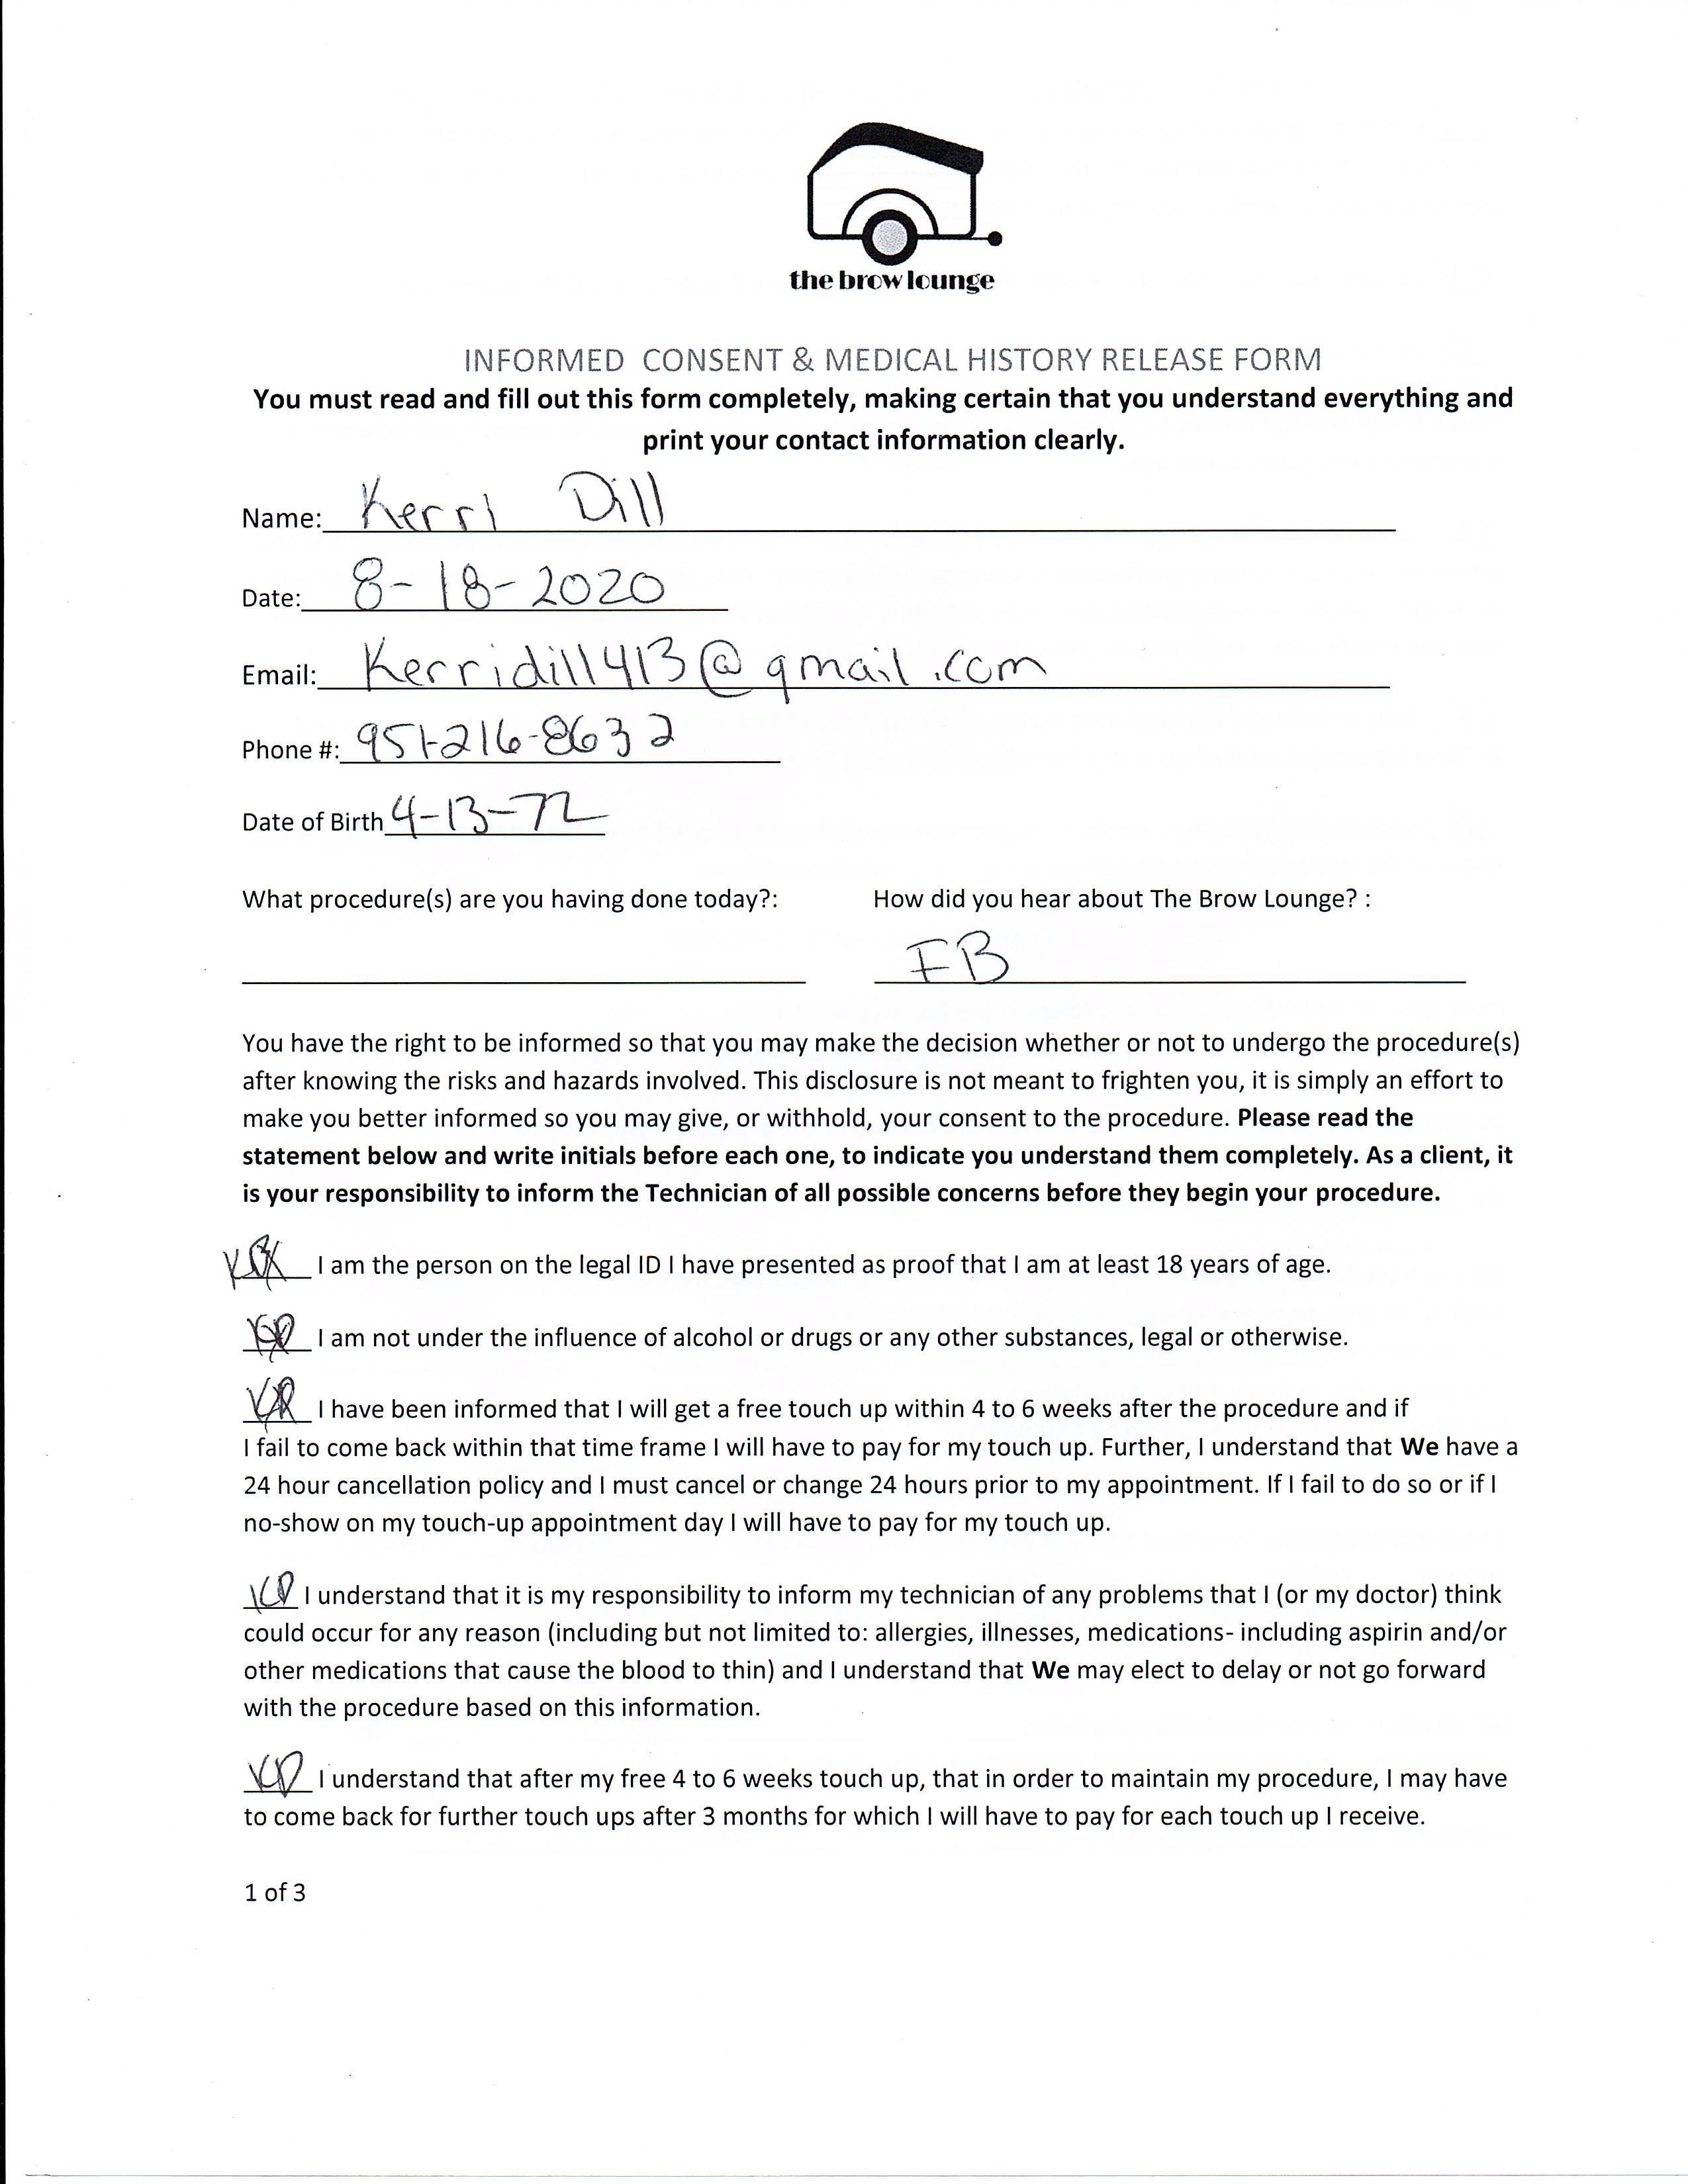 the brow lounge
INFORMED CONSENT & MEDICAL HISTORY RELEASE FORM
You must read and fill out this form completely, making certain that you understand everything and
print your contact information clearly.
Name: Kerri Dill
Date: 8-18-2020
Email: Kerridill413@gmail.com
Phone #: 951-216-8632
Date of Birth 4-13-72
What procedure(s) are you having done today?: How did you hear about The Brow Lounge? :
FB
You have the right to be informed so that you may make the decision whether or not to undergo the procedure(s)
after knowing the risks and hazards involved. This disclosure is not meant to frighten you, it is simply an effort to
make you better informed so you may give, or withhold, your consent to the procedure. Please read the
statement below and write initials before each one, to indicate you understand them completely. As a client, it
is your responsibility to inform the Technician of all possible concerns before they begin your procedure.
I am the person on the legal ID I have presented as proof that I am at least 18 years of age.
I am not under the influence of alcohol or drugs or any other substances, legal or otherwise.
I have been informed that I will get a free touch up within 4 to 6 weeks after the procedure and if
I fail to come back within that time frame I will have to pay for my touch up. Further, I understand that We have a
24 hour cancellation policy and I must cancel or change 24 hours prior to my appointment. If I fail to do so or if I
no-show on my touch-up appointment day I will have to pay for my touch up.
KD I understand that it is my responsibility to inform my technician of any problems that I (or my doctor) think
could occur for any reason (including but not limited to: allergies, illnesses, medications- including aspirin and/or
other medications that cause the blood to thin) and I understand that We may elect to delay or not go forward
with the procedure based on this information.
KD I understand that after my free 4 to 6 weeks touch up, that in order to maintain my procedure, I may have
to come back for further touch ups after 3 months for which I will have to pay for each touch up I receive.
1 of 3